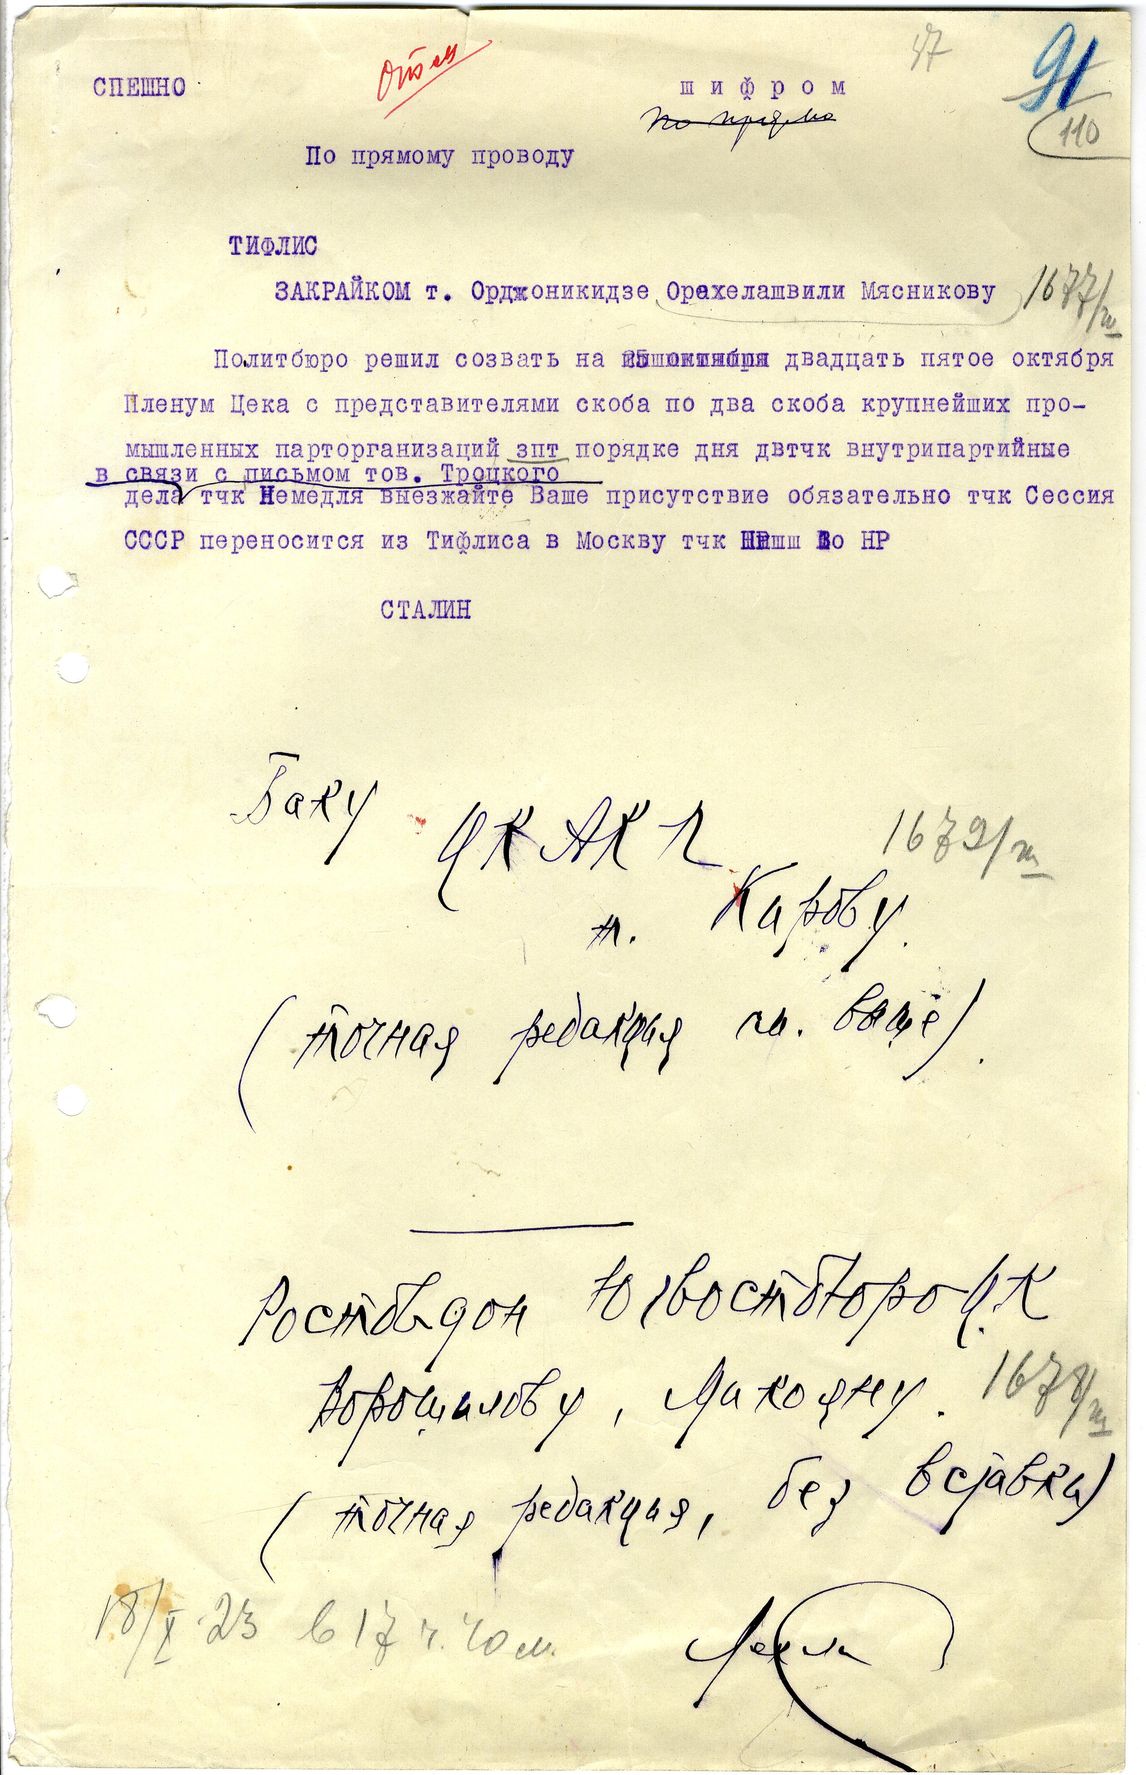 47
91
110
СПЕШНО
шифром
По прямому проводу
ТИФЛИС
ЗАКРАЙКОМ т. Орджоникидзе Орахелашвили Мясникову
1677/ш
Политбюро решил созвать на двадцать пятое октября
Пленум Цека с представителями скоба по два скоба крупнейших про-
мышленных парторганизаций зпт порядке дня двтчк внутрипартийные
в связи с письмом тов. Троцкого
дела тчк Немедля выезжайте Ваше присутствие обязательно тчк Сессия
СССР переносится из Тифлиса в Москву тчк НР
СТАЛИН
Баку ЦК АКП
1679/ш
т. Кирову.
(точная редакция см. выше).
Ростов-дон Югвостбюро ЦК
Ворошилову, Микояну.
1678/ш
(точная редакция, без вставки)
18/X-23 в 17 ч. 40 м.